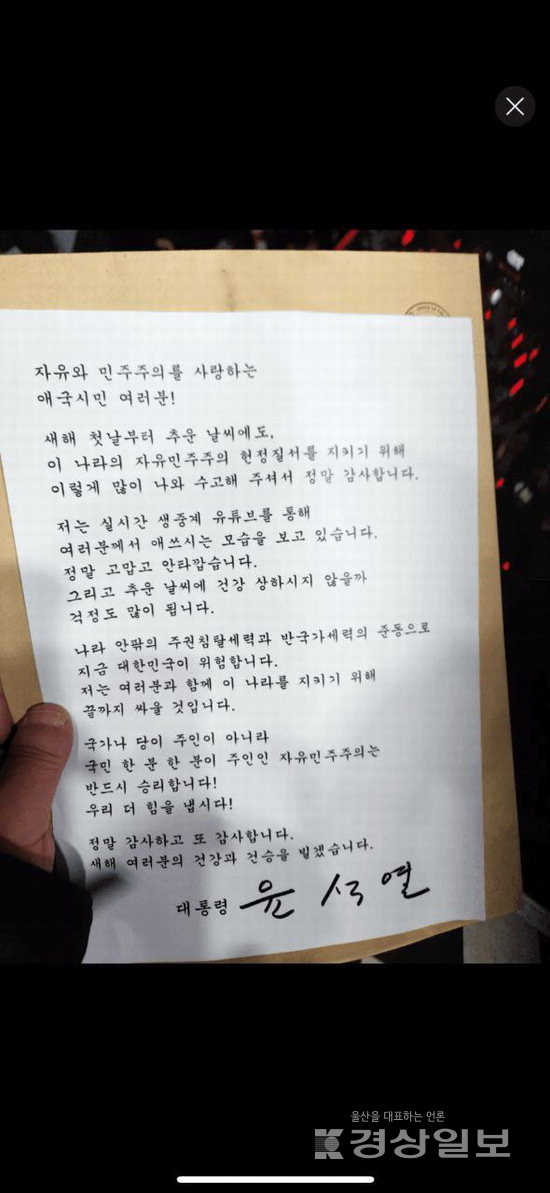 자유와 민주주의를 사랑하는
애국시민 여러분!
새해 첫날부터 추운 날씨에도,
이 나라의 자유민주주의 헌정질서를 지키기 위해
이렇게 많이 나와 수고해 주셔서 정말 감사합니다.
저는 실시간 생중계 유튜브를 통해
여러분께서 애쓰시는 모습을 보고 있습니다.
정말 고맙고 안타깝습니다.
그리고 추운 날씨에 건강 상하시지 않을까
걱정도 많이 됩니다.
나라 안팎의 주권침탈세력과 반국가세력의 준동으로
지금 대한민국이 위험합니다.
저는 여러분과 함께 이 나라를 지키기 위해
끝까지 싸울 것입니다.
국가나 당이 주인이 아니라
국민 한 분 한 분이 주인인 자유민주주의는
반드시 승리합니다!
우리 더 힘을 냅시다!
정말 감사하고 또 감사합니다.
새해 여러분의 건강과 건승을 빌겠습니다.
대통령 윤석열
울산을 대표하는 언론
경상일보